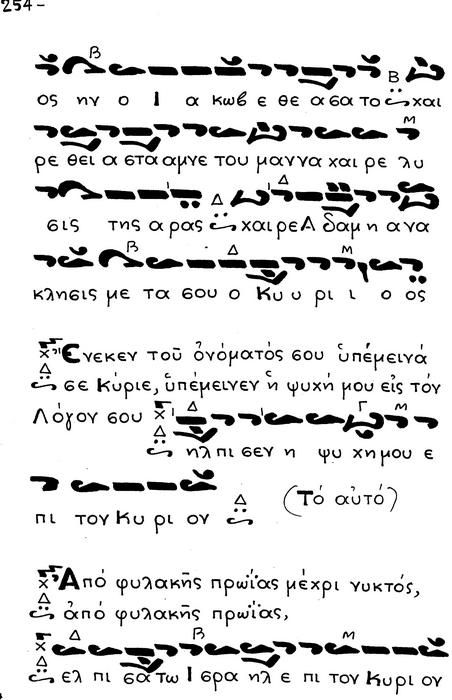 254-
Β
ος ην ο Ι α κωβ ε θε ασατο Β χαι
Μ
ρε θει α στα αμνε του μαννα χαι ρε λυ
Δ
σις της α ρας Δ χαιρεΑ δαμ η ανα
Β Δ Μ
κλησις με τα σου ο Κυ υ ρι ι ο ος
Ένεκεν τοῦ ὀνόματός σου ὑπέμεινά
σε Κύριε, ὑπέμεινεν ἡ ψυχή μου εἰς τόν
Λόγον σου Δ Γ Μ
ηλ πι σεν η ψυ χημου ε
πι τον Κυ ρι ον Δ (Τό αὐτό)
Ἀπό φυλακῆς πρωΐας μέχρι νυκτός,
ἀπό φυλακῆς πρωΐας,
Δ Β Μ
ελ πι σα τω Ι σρα ηλ ε πι τον Κυρι ον